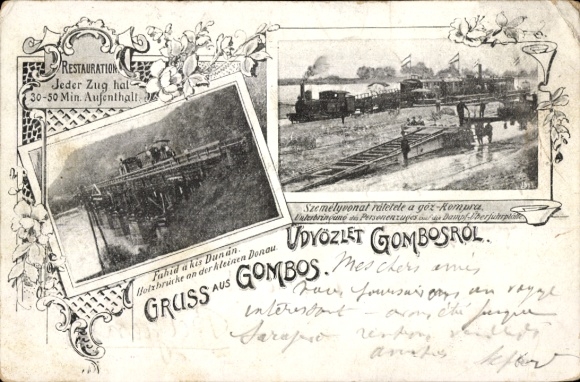 RESTAURATION
Jeder Zug hat
30-50 Min. Aufenthalt.
Személyvonat rátétele a gőz-kompra.
Unterbringung des Personenzuges auf die Dampf-Überfuhrplätte
Fahíd a kis Dunán.
Holzbrücke an der kleinen Donau.
ÜDVÖZLET GOMBOSRÓL.
GRUSS AUS GOMBOS.
Mes chers amis
un voyage
intéressant - avons été jusque
Sarajevo
amitiés